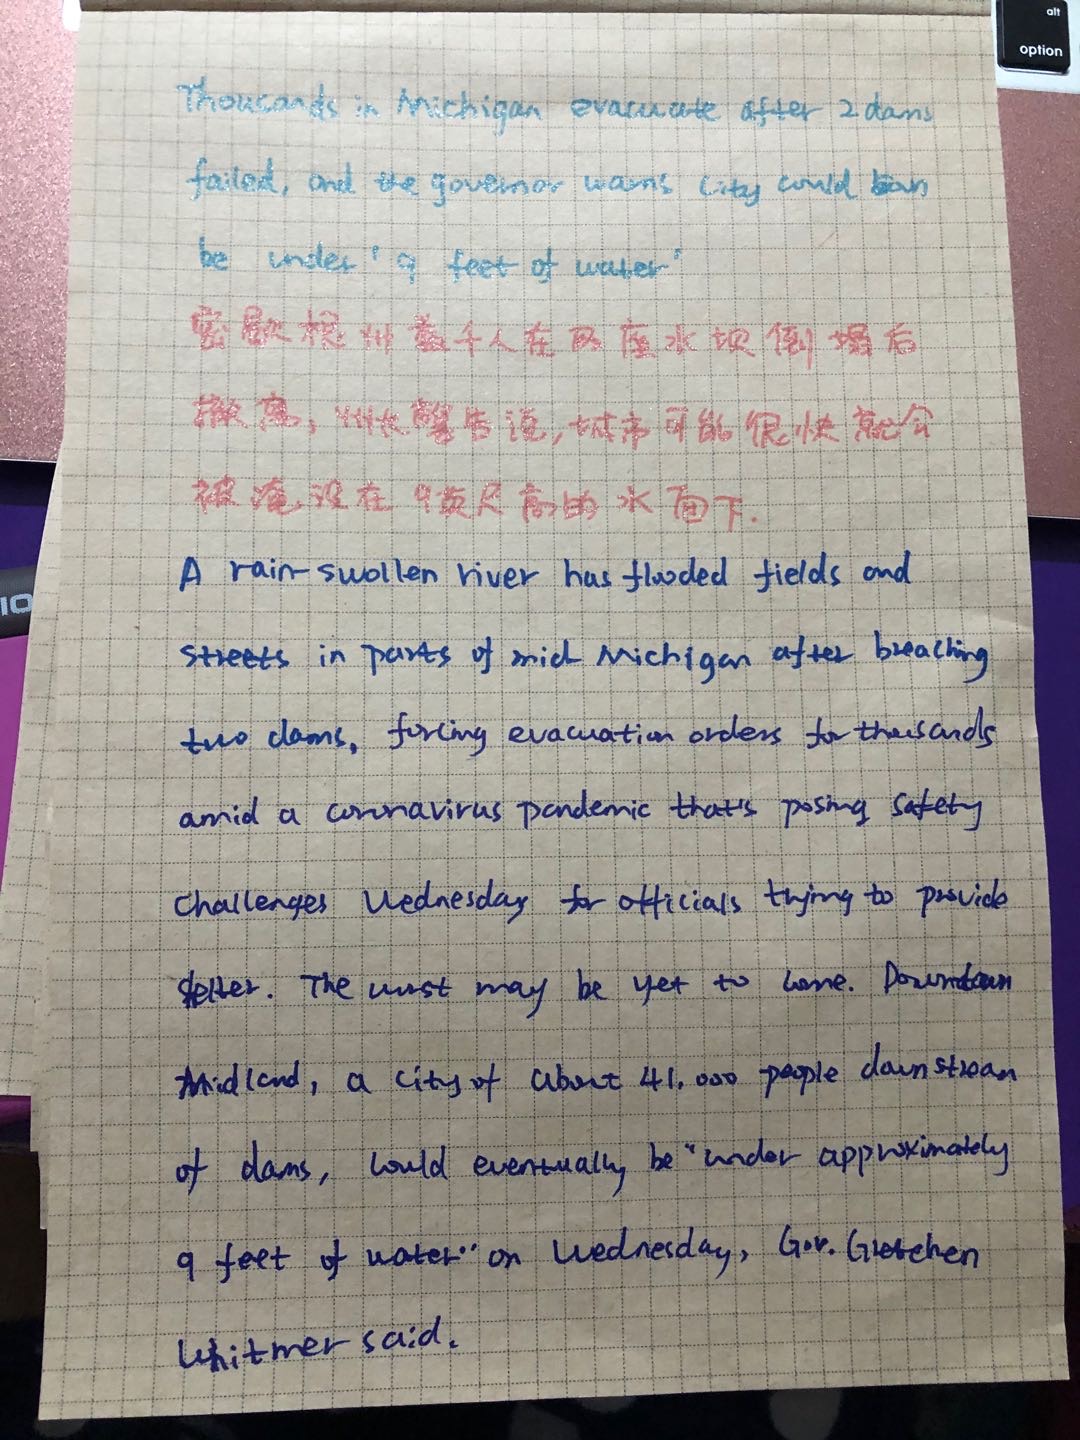 alt
option
Thousands in Michigan evacuate after 2 dams
failed, and the governor warns city could
be under ' 9 feet of water'
密歇根州数千人在两座水坝倒塌后
撤离，州长警告说，城市可能很快就会
被淹没在9英尺高的水面下.
A rain-swollen river has flooded fields and
streets in parts of mid Michigan after breaching
two dams, forcing evacuation orders for thousands
amid a coronavirus pandemic that's posing safety
challenges Wednesday for officials trying to provide
The worst may be yet to come. Downtown
Midland, a city of about 41,000 people downstream
of dams, could eventually be "under approximately
9 feet of water" on Wednesday, Gov. Gretchen
Whitmer said.